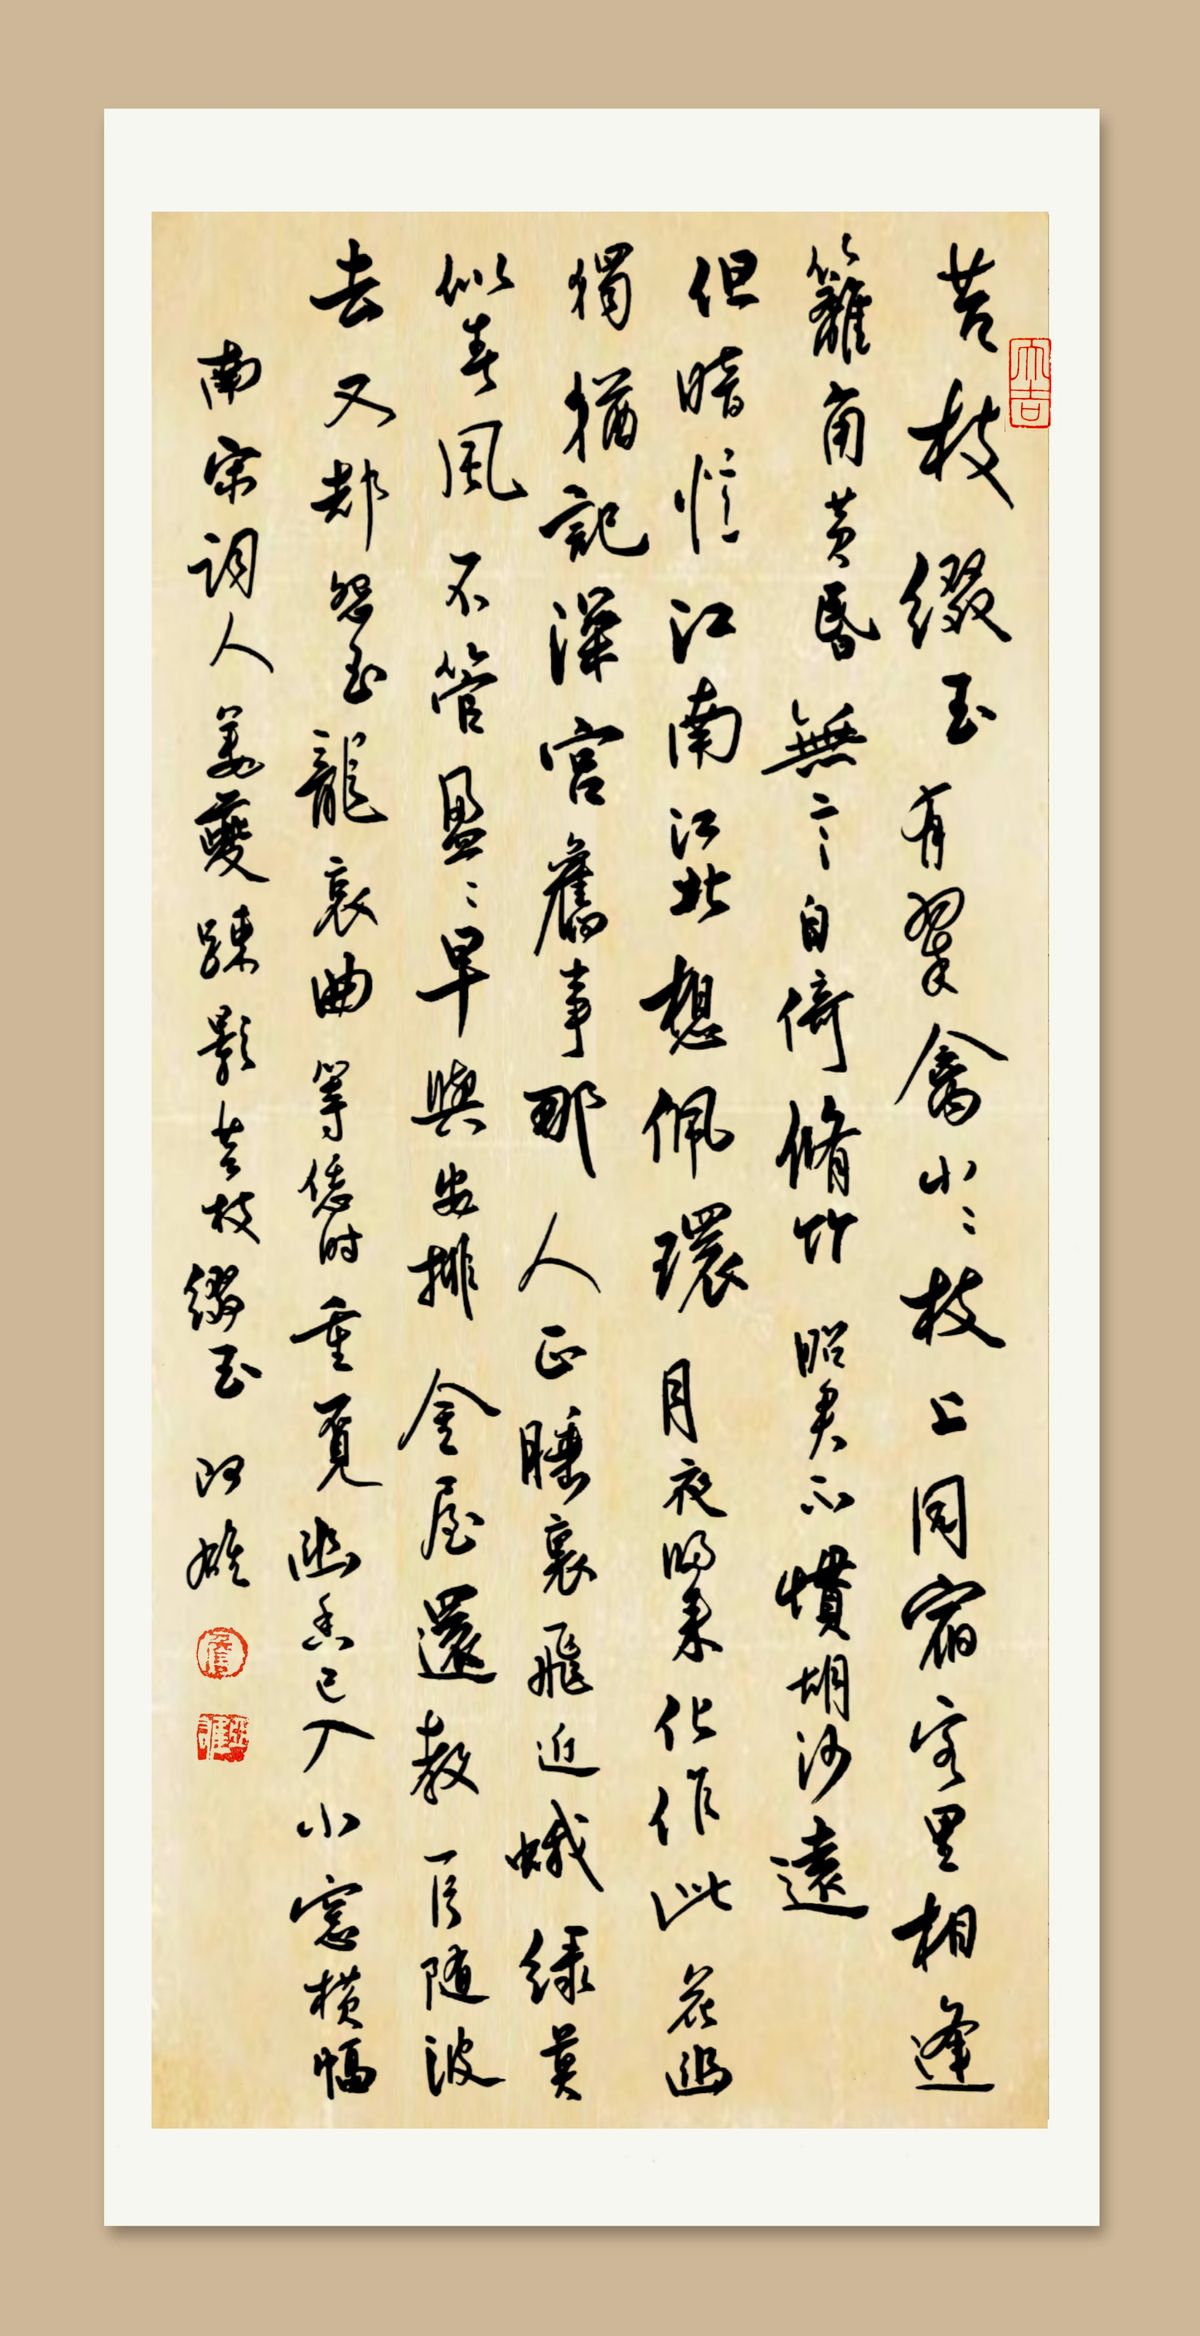 苔枝綴玉有翠禽小〻枝上同宿客里相逢
籬角黃昏無言自倚脩竹昭君不慣胡沙遠
但暗憶江南江北想佩環月夜歸來化作此花幽
獨猶記深宮舊事那人正睡裏飛近蛾綠莫
似春風不管盈〻早與安排金屋還教一片隨波
去又却怨玉龍哀曲等恁時重覓幽香已入小窗橫幅
南宋詞人姜夔疎影苔枝綴玉 阿雄
大吉